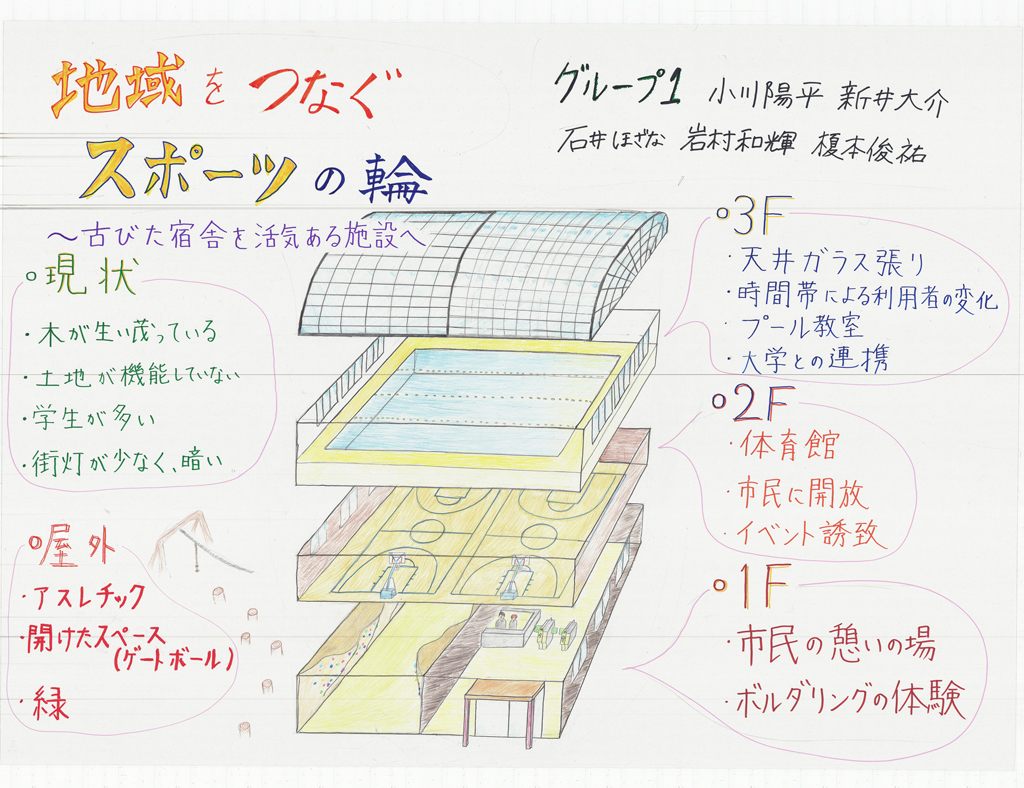 地域をつなぐ
スポーツの輪
～古びた宿舎を活気ある施設へ
グループ1 小川陽平 新井大介
石井ほざな 岩村和輝 榎本俊祐
○現状
・木が生い茂っている
・土地が機能していない
・学生が多い
・街灯が少なく、暗い
○屋外
・アスレチック
・開けたスペース
(ゲートボール)
・緑
○3F
・天井ガラス張り
・時間帯による利用者の変化
・プール教室
・大学との連携
○2F
・体育館
・市民に開放
・イベント誘致
○1F
・市民の憩いの場
・ボルダリングの体験